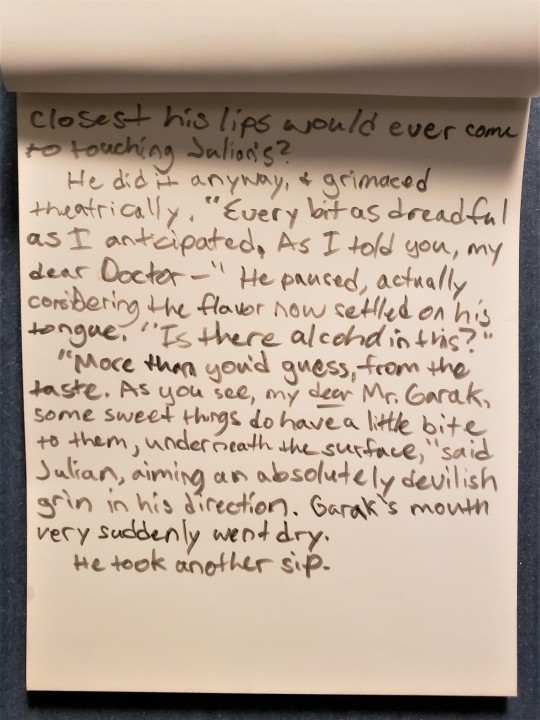 closest his lips would ever come
to touching Julian's?
He did it anyway, & grimaced
theatrically. "Every bit as dreadful
as I anticipated. As I told you, my
dear Doctor—" He paused, actually
considering the flavor now settled on his
tongue. "Is there alcohol in this?"
"More than you'd guess, from the
taste. As you see, my dear Mr. Garak,
some sweet things do have a little bite
to them, underneath the surface," said
Julian, aiming an absolutely devilish
grin in his direction. Garak's mouth
very suddenly went dry.
He took another sip.